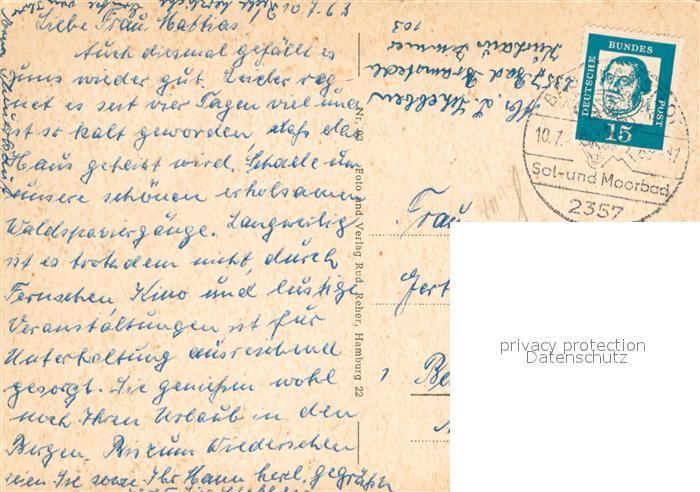 10.7.63
Liebe Frau Mattias
Auch diesmal gefällt es
uns wieder gut. Leider reg-
net es seit vier Tagen viel und
ist so kalt geworden, daß das
Haus geheizt wird. Schade um
unsere schönen erholsamen
Waldspaziergänge. Langweilig
ist es trotzdem nicht, durch
Fernsehen Kino und lustige
Veranstaltungen ist für
Unterhaltung ausreichend
gesorgt. Sie genießen wohl
noch Ihren Urlaub in den
Bergen. Bis zum Wiedersehen
seien Sie sowie Ihr Mann herzl. gegrüßt
Nr. 93 Foto und Verlag Rud. Reher, Hamburg 22
Abs. L.
2357 Bad Bramstedt
Kurhaus Zimmer
103
DEUTSCHE BUNDES POST
15
10.7.
Sol- und Moorbad
2357
Frau
Gert
Be
privacy protection
Datenschutz